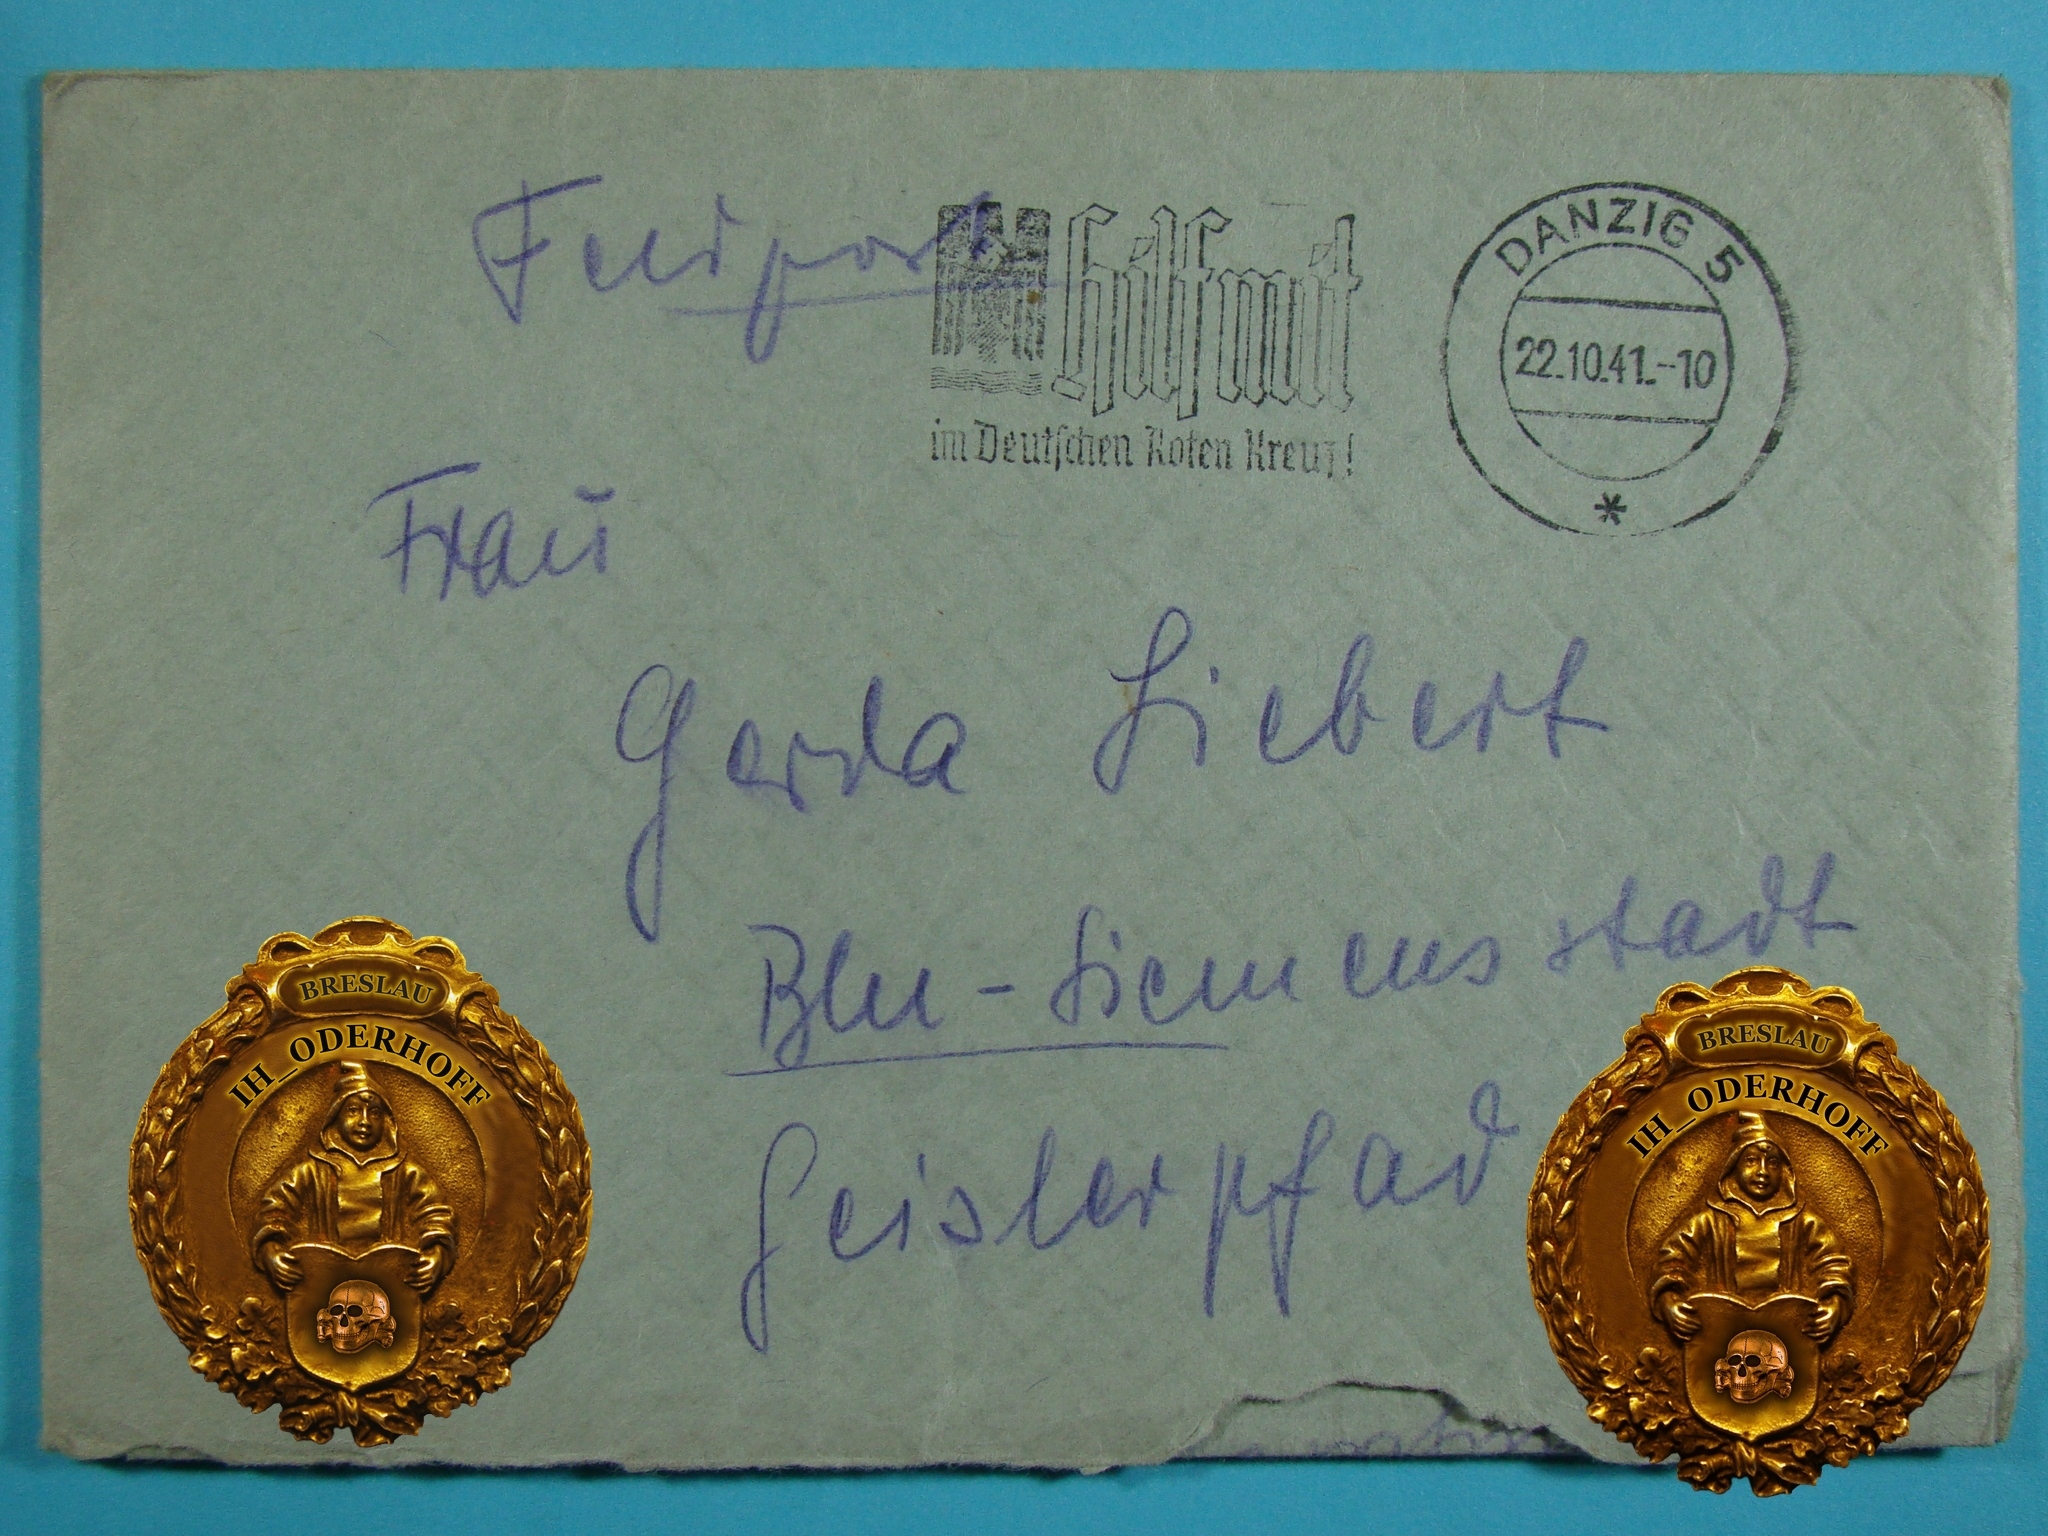 Feldpost
hilf mit
im Deutschen Roten Kreuz!
DANZIG 5
22.10.41.--10
*
Frau
Gerda Siebert
Bln - Siemensstadt
Geislerpfad
BRESLAU
IH_ODERHOFF
BRESLAU
IH_ODERHOFF